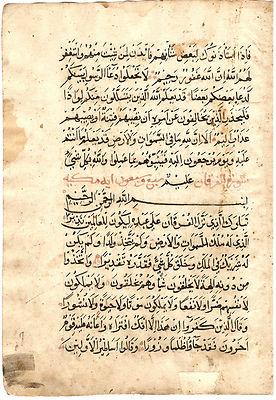 فاذا استاذنوك لبعض شانهم فاذن لمن شئت منهم واستغفر
لهم الله ان الله غفور رحيم لا تجعلوا دعا الرسول بينكم
كدعا بعضكم بعضا قد يعلم الله الذين يتسللون منكم لواذا
فليحذر الذين يخالفون عن امره ان تصيبهم فتنة او يصيبهم
عذاب اليم الا ان لله ما في السموات والارض قد يعلم ما انتم
عليه ويوم يرجعون اليه فينبئهم بما عملوا والله بكل شيء
سورة الفرقان عليم سبع وسبعون اية مكية
بسم الله الرحمن الرحيم
تبارك الذي نزل الفرقان على عبده ليكون للعالمين نذيرا
الذي له ملك السموات والارض ولم يتخذ ولدا ولم يكن
له شريك في الملك وخلق كل شيء فقدره تقديرا واتخذوا
من دونه الهة لا يخلقون شيا وهم يخلقون ولا يملكون
لانفسهم ضرا ولا نفعا ولا يملكون موتا ولا حيوة ولا نشورا
وقال الذين كفروا ان هذا الا افك افتراه واعانه عليه قوم
اخرون فقد جاؤ ظلما وزورا وقالوا اساطير الاولين